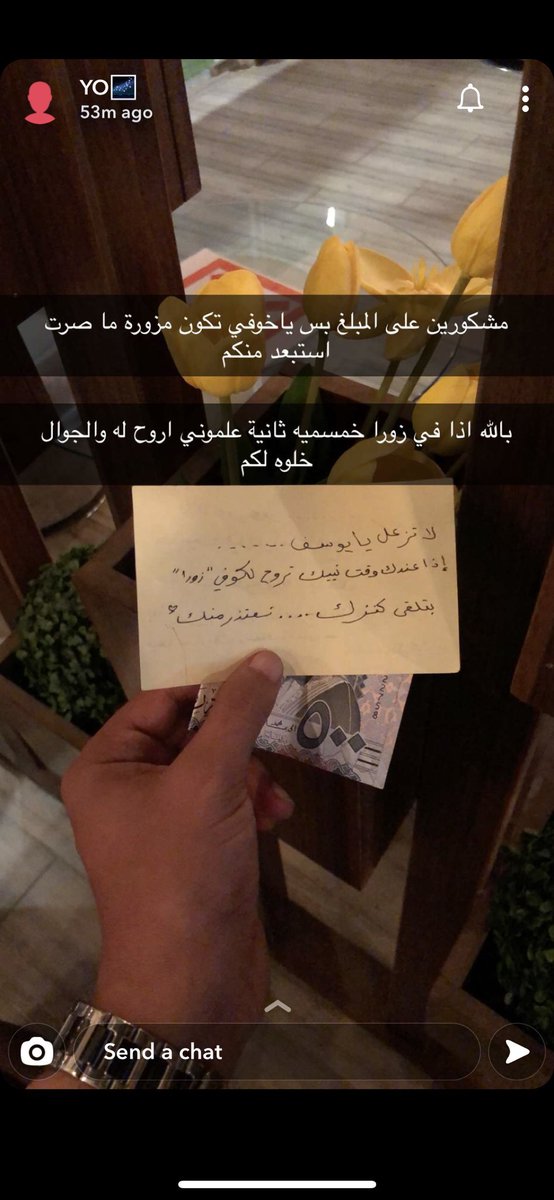 YO
53m ago
مشكورين على المبلغ بس ياخوفي تكون مزورة ما صرت
استبعد منكم
بالله اذا في زورا خمسميه ثانية علموني اروح له والجوال
خلوه لكم
لا تزعل يا يوسف ......
إذا عندك وقت نبيك تروح لكوفي "زورا"
بتلقى كنزك .... نعتذر منك
٥٠٠
Send a chat